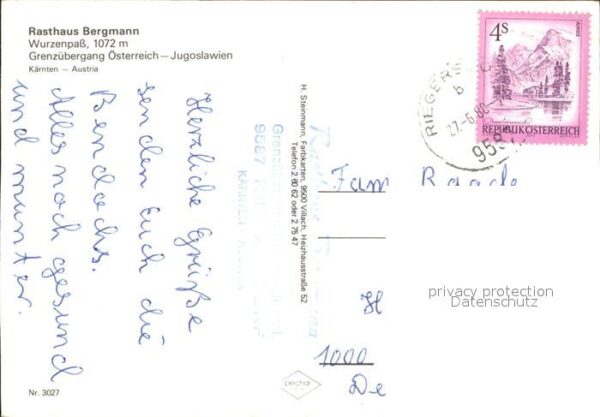 Rasthaus Bergmann
Wurzenpaß, 1072 m
Grenzübergang Österreich – Jugoslawien
Kärnten – Austria
Herzliche Grüße
senden Euch die
Bendochs.
Alles noch gesund
und munter.
Nr. 3027
H. Steinmann, Farbkarten, 9500 Villach, Heizhausstraße 52
Telefon 2 60 62 oder 2 75 47
pechal
4s
REPUBLIK ÖSTERREICH
27.-6.80
Fam
H
1000
De
privacy protection
Datenschutz